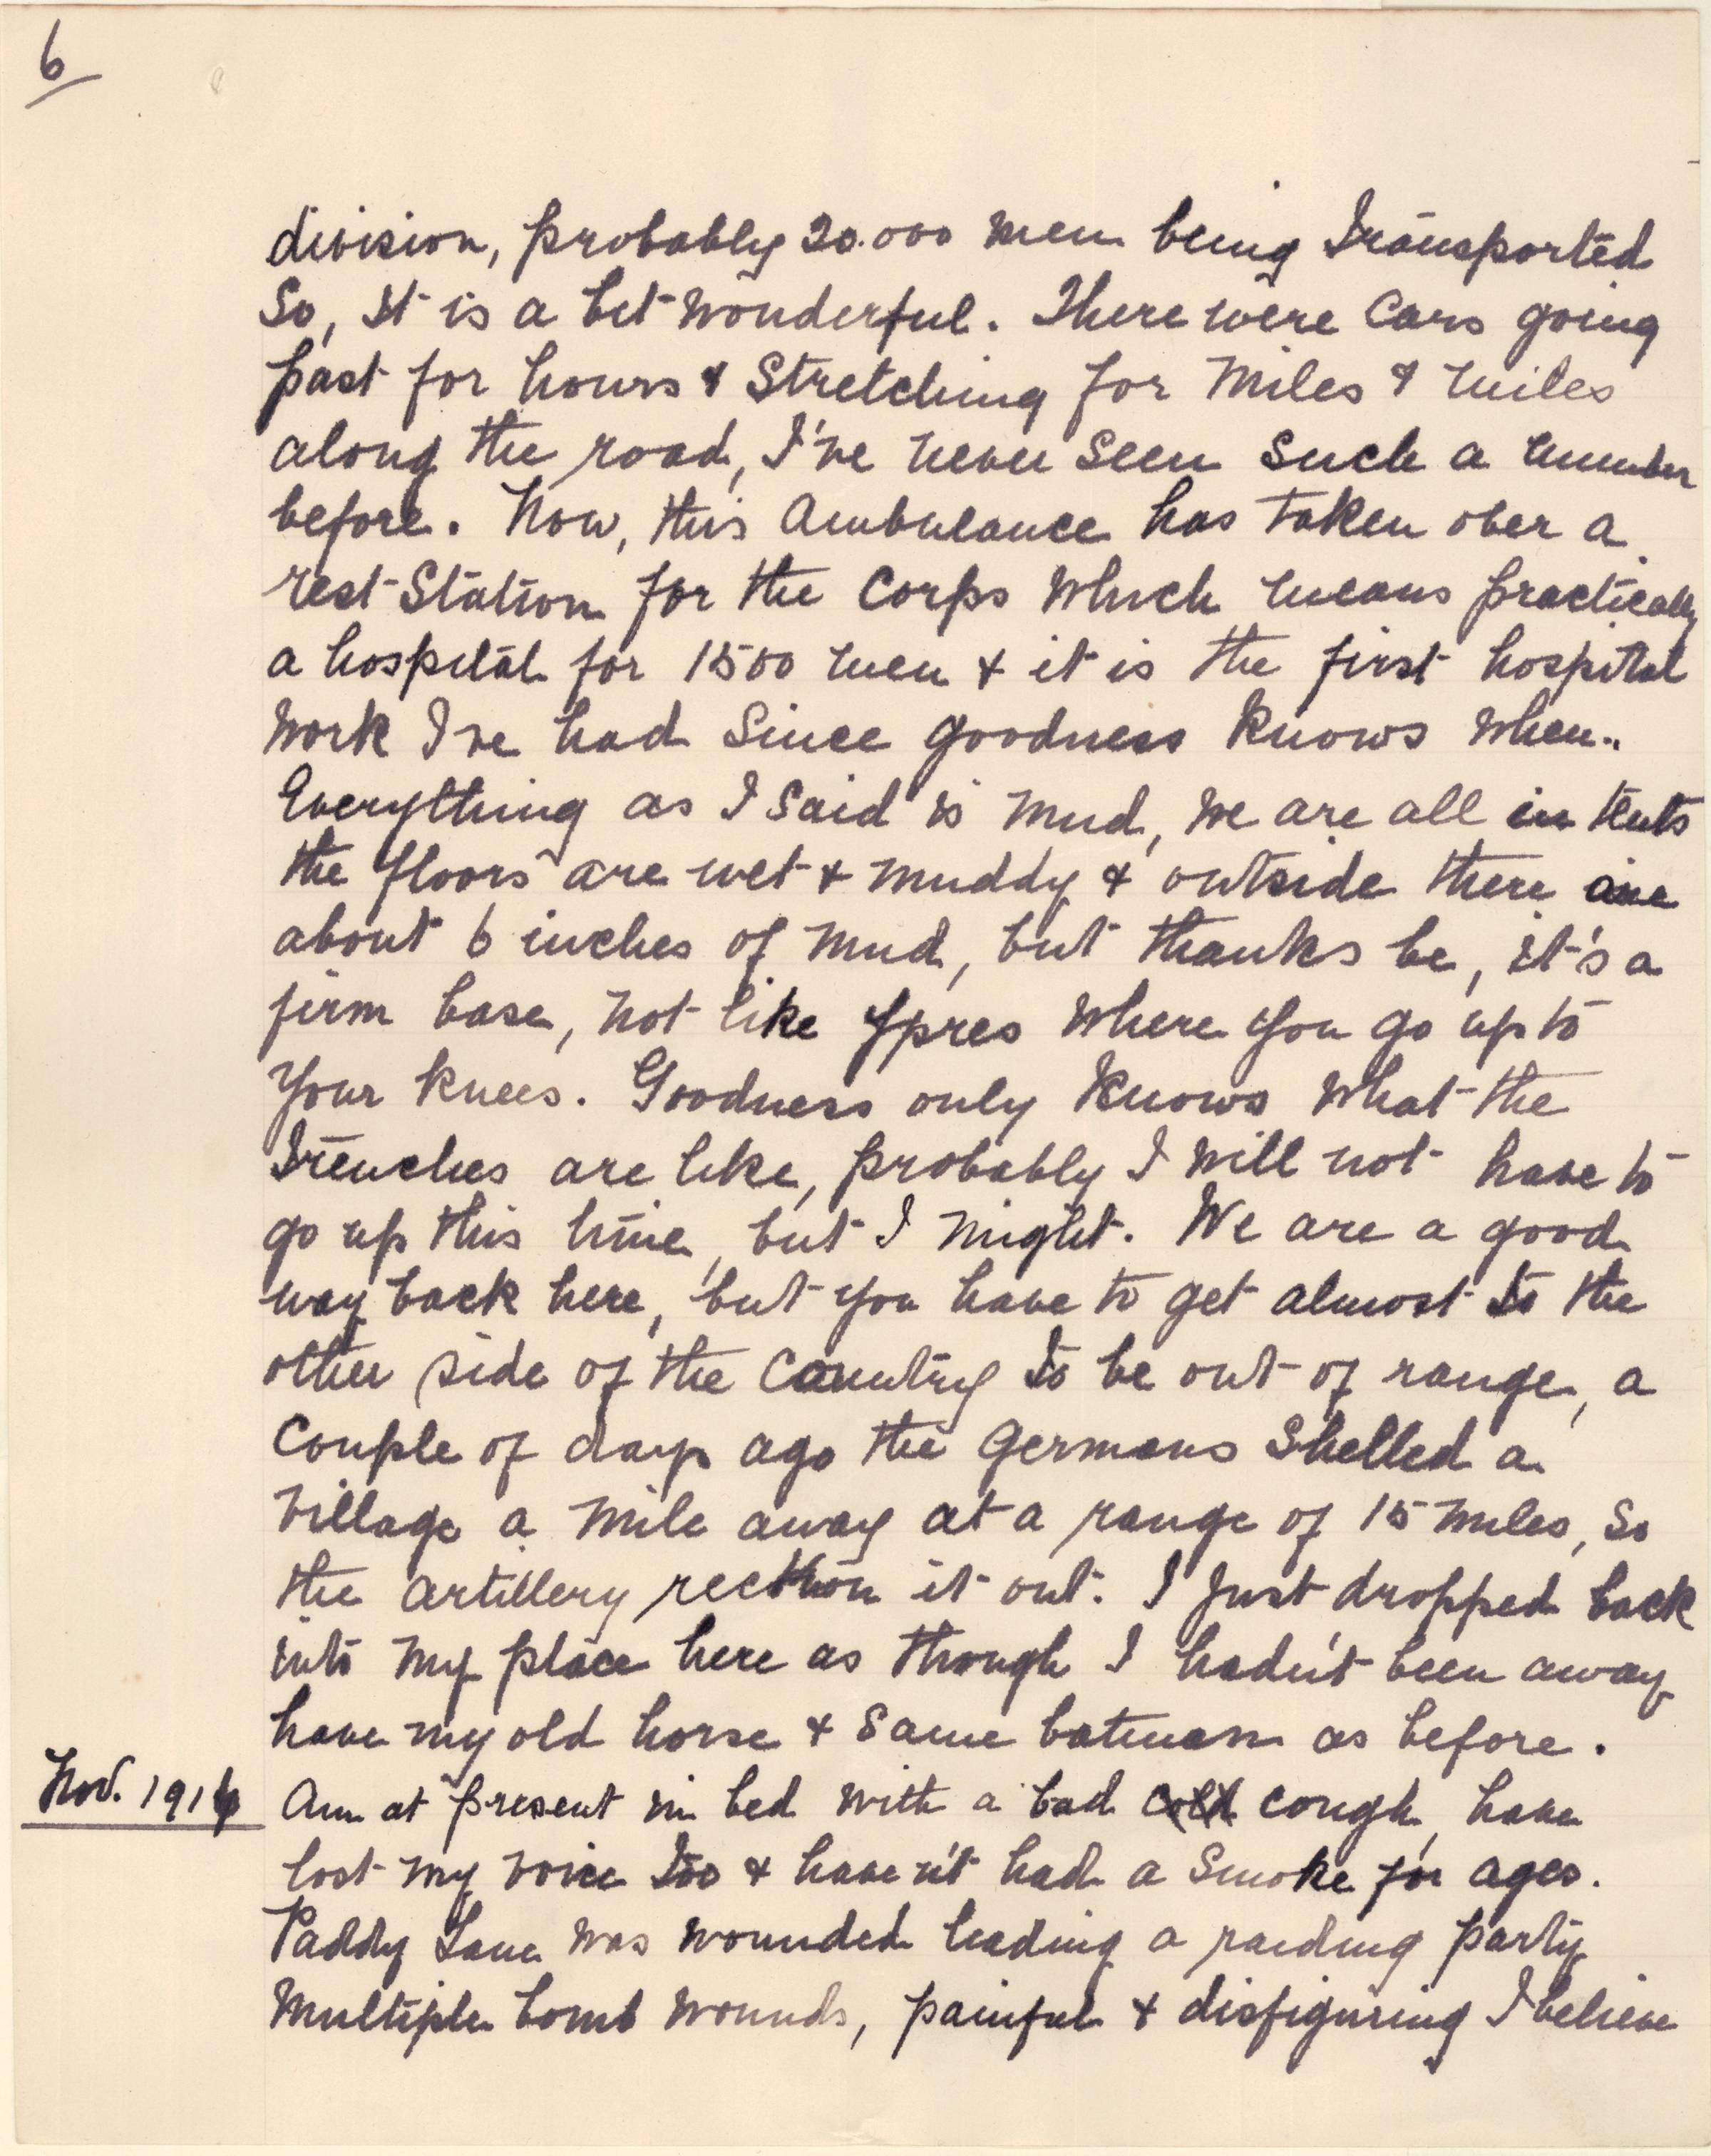 6
division, probably 20.000 men being Transported
So, It is a bit wonderful. There were Cars going
past for hours & Stretching for Miles & miles
along the road, I've never seen such a number
before. Now, this Ambulance has taken over a
rest-Station for the Corps which means practically
a hospital for 1500 men & it is the first hospital
work I've had Since goodness knows when..
Everything as I said is mud, we are all in tents
the floors are wet & muddy & outside there are
about 6 inches of mud, but thanks be, it's a
firm base, not like Ypres where you go up to
your knees. Goodness only knows what the
Trenches are like, probably I will not have to
go up this time, but I might. We are a good
way back here, but you have to get almost to the
other side of the Country to be out of range, a
Couple of days ago the Germans Shelled a
Village a mile away at a range of 15 miles, So
the artillery reckon it out. I just dropped back
into my place here as though I hadn't been away
have my old horse & same batman as before.
Nov. 1916 Am at present in bed with a bad cold cough, have
lost my voice too & haven't had a Smoke for ages.
Paddy Lane was wounded leading a raiding party
Multiple bomb wounds, painful & disfiguring I believe